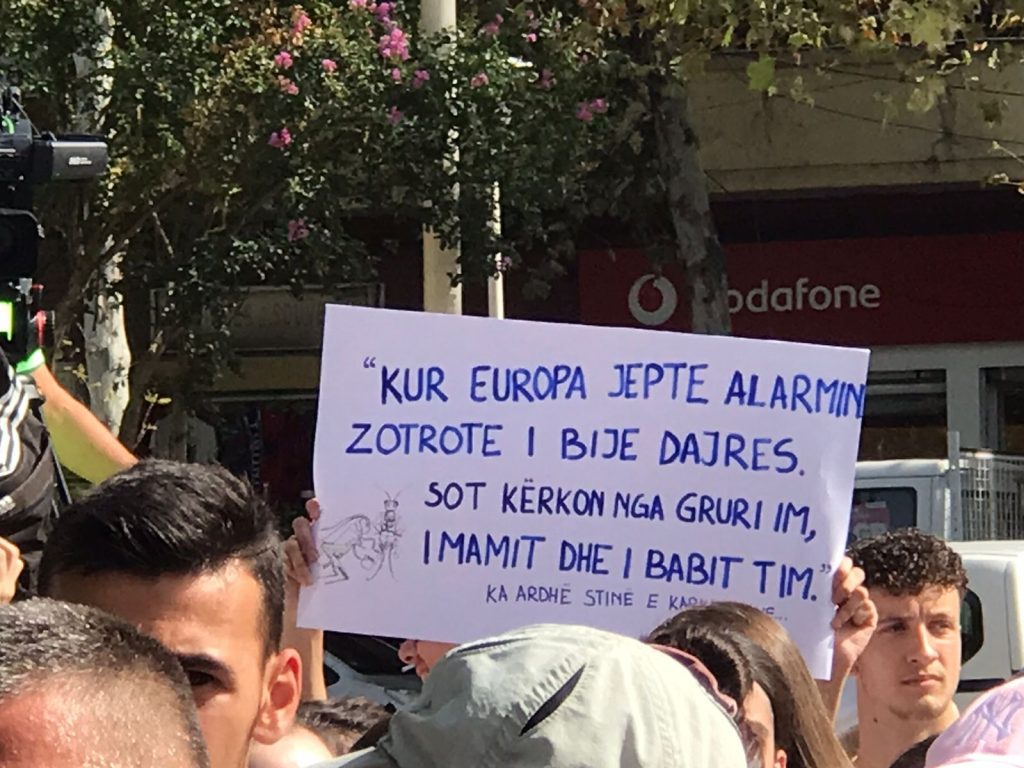 vodafone
“KUR EUROPA JEPTE ALARMIN
ZOTROTE I BIJE DAJRES.
SOT KËRKON NGA GRURI IM,
I MAMIT DHE I BABIT TIM.”
KA ARDHË STINË E